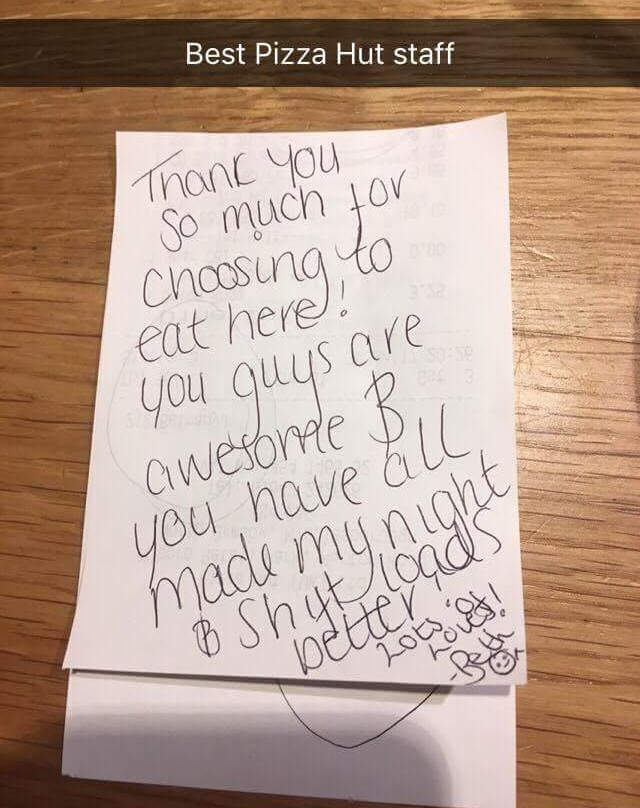 Best Pizza Hut staff
Thank You
So much for
choosing to
eat here!
you guys are
awesome &
you have all
made my night
& Shyt loads
better!
Lots of
Loves!
-Beth